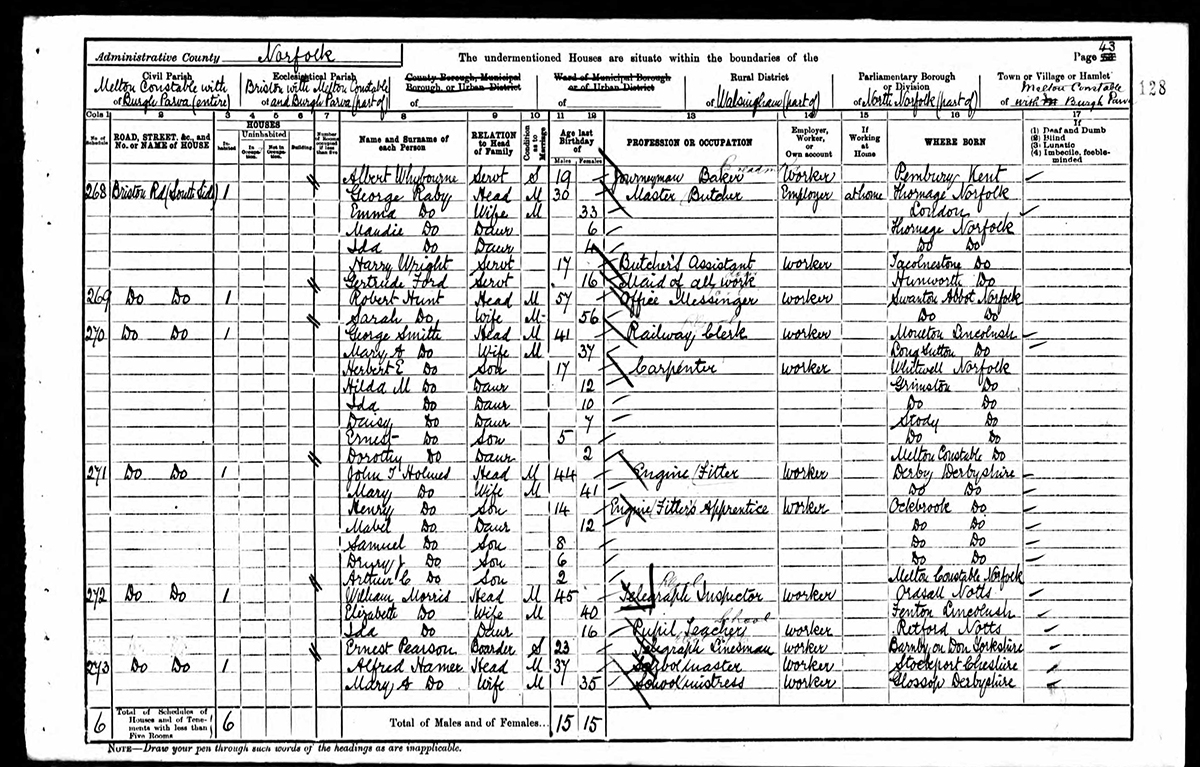 Administrative County Norfolk The undermentioned Houses are situate within the boundaries of the Page 43
Civil Parish Ecclesiastical Parish County Borough, Municipal Borough, or Urban District Ward of Municipal Borough or of Urban District Rural District Parliamentary Borough or Division Town or Village or Hamlet
of Melton Constable with Burgh Parva (entire) of Briston with Melton Constable and Burgh Parva (part of) of of of Walsingham (part of) of North Norfolk (part of) of Melton Constable with Burgh Parva 128
Cols 1 2 3 4 5 6 7 8 9 10 11 12 13 14 15 16 17
No. of Schedule ROAD, STREET, &c., and No. or NAME of HOUSE HOUSES Inhabited Uninhabited In Occupation. Not in Occupation. Building Number of Rooms occupied if less than five Name and Surname of each Person RELATION to Head of Family Condition as to Marriage Age last Birthday of Males Females PROFESSION OR OCCUPATION Employer, Worker, or Own account If Working at Home WHERE BORN If (1) Deaf and Dumb (2) Blind (3) Lunatic (4) Imbecile, feeble-minded
Albert Whybourne Servt S 19 Journeyman Baker Worker Pembury Kent
268 Briston Rd (South Side) 1 George Raby Head M 30 Master Butcher Employer at home Thornage Norfolk
Emma Do Wife M 33 London
Maudie Do Daur 6 Thornage Norfolk
Ida Do Daur 4 Do Do
Harry Wright Servt 17 Butcher's Assistant Worker Tacolnestone Do
Gertrude Ford Servt 16 Maid of all work Hunworth Do
269 Do Do 1 Robert Hunt Head M 57 Office Messenger Worker Swanton Abbot Norfolk
Sarah Do Wife M 56 Do Do
270 Do Do 1 George Smith Head M 41 Railway Clerk Worker Moulton Lincolnsh
Mary A Do Wife M 37 Long Sutton Do
Herbert E Do Son 17 Carpenter Worker Whitwell Norfolk
Hilda M Do Daur 12 Grimston Do
Ida Do Daur 10 Do Do
Daisy Do Daur 7 Stody Do
Ernest Do Son 5 Do Do
Dorothy Do Daur 2 Melton Constable Do
271 Do Do 1 John T Holmes Head M 44 Engine Fitter Worker Derby Derbyshire
Mary Do Wife M 41 Do Do
Henry Do Son 14 Engine Fitter's Apprentice Worker Ockbrook Do
Mabel Do Daur 12 Do Do
Samuel Do Son 8 Do Do
Drury J. Do Son 6 Do Do
Arthur C Do Son 2 Melton Constable Norfolk
272 Do Do 1 William Morris Head M 45 Telegraph Inspector Worker Ordsall Notts
Elizabeth Do Wife M 40 Fenton Lincolnsh
Ida Do Daur 16 Pupil Teacher School Worker Retford Notts
Ernest Pearson Boarder S 23 Telegraph Linesman Worker Barnby on Don Yorkshire
273 Do Do 1 Alfred Hamer Head M 37 Schoolmaster Worker Stockport Cheshire
Mary A Do Wife M 35 Schoolmistress Worker Glossop Derbyshire
6 Total of Schedules of Houses and of Tenements with less than Five Rooms 6 Total of Males and of Females... 15 15
NOTE—Draw your pen through such words of the headings as are inapplicable.